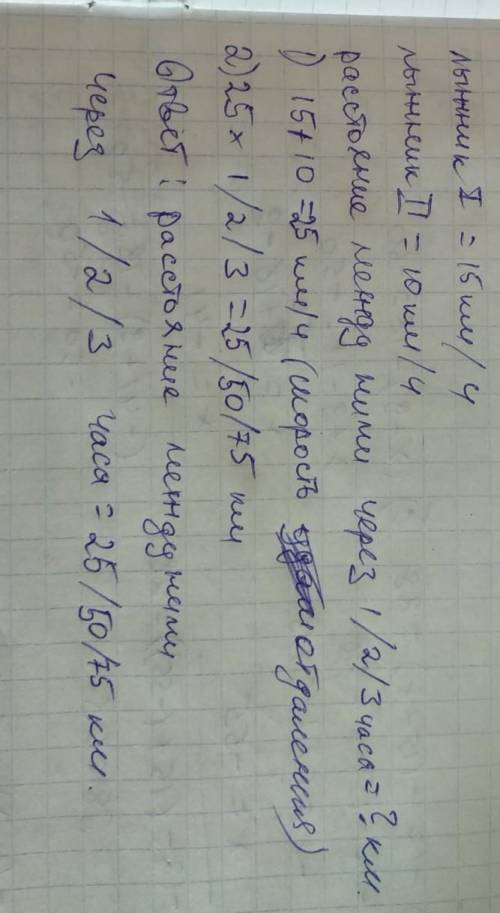 лыжник I = 15 км/ч
лыжник II = 10 км/ч
расстояние между ними через 1/2/3 часа = ? км.
1) 15+10=25 км/ч (скорость отдаления)
2) 25 × 1/2/3 = 25/50/75 км
Ответ: расстояние между ними
через 1/2/3 часа = 25/50/75 км.